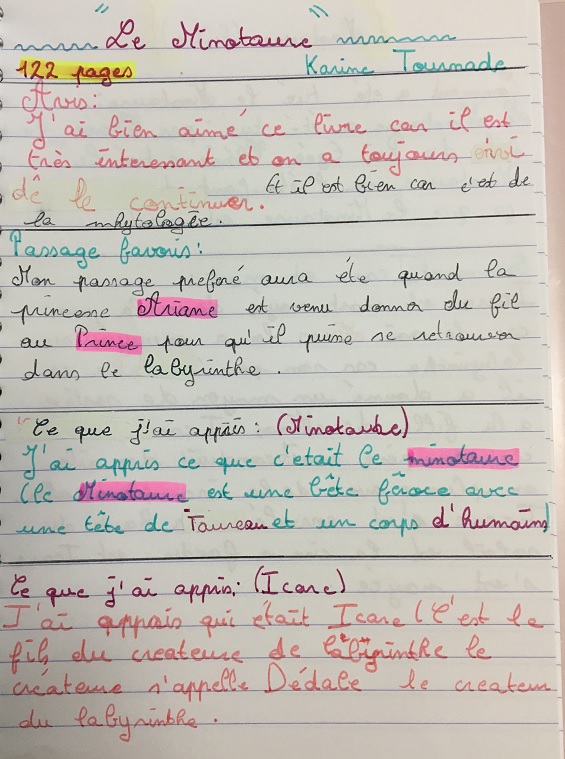 " Le Minotaure "
122 pages Karine Tournade
Avis:
J'ai bien aimé ce livre car il est
très interessant et on a toujours envi
de le continuer. Et il est bien car c'est de
la mhytologée.
Passage favoris:
Mon passage preferé aura éte quand la
princesse Ariane est venu donner du fil
au Prince pour qu'il puisse se retrouver
dans le labyrinthe.
Ce que j'ai appris: (Minotaure)
J'ai appris ce que c'etait le minotaure
(le Minotaure est une bête féroce avec
une tête de Taureau et un corps d'humain)
Ce que j'ai appris: (Icare)
J'ai appris qui était Icare (C'est le
fils du createure de labyrinthe le
créateure s'appelle Dédale le createur
du labyrinthe.